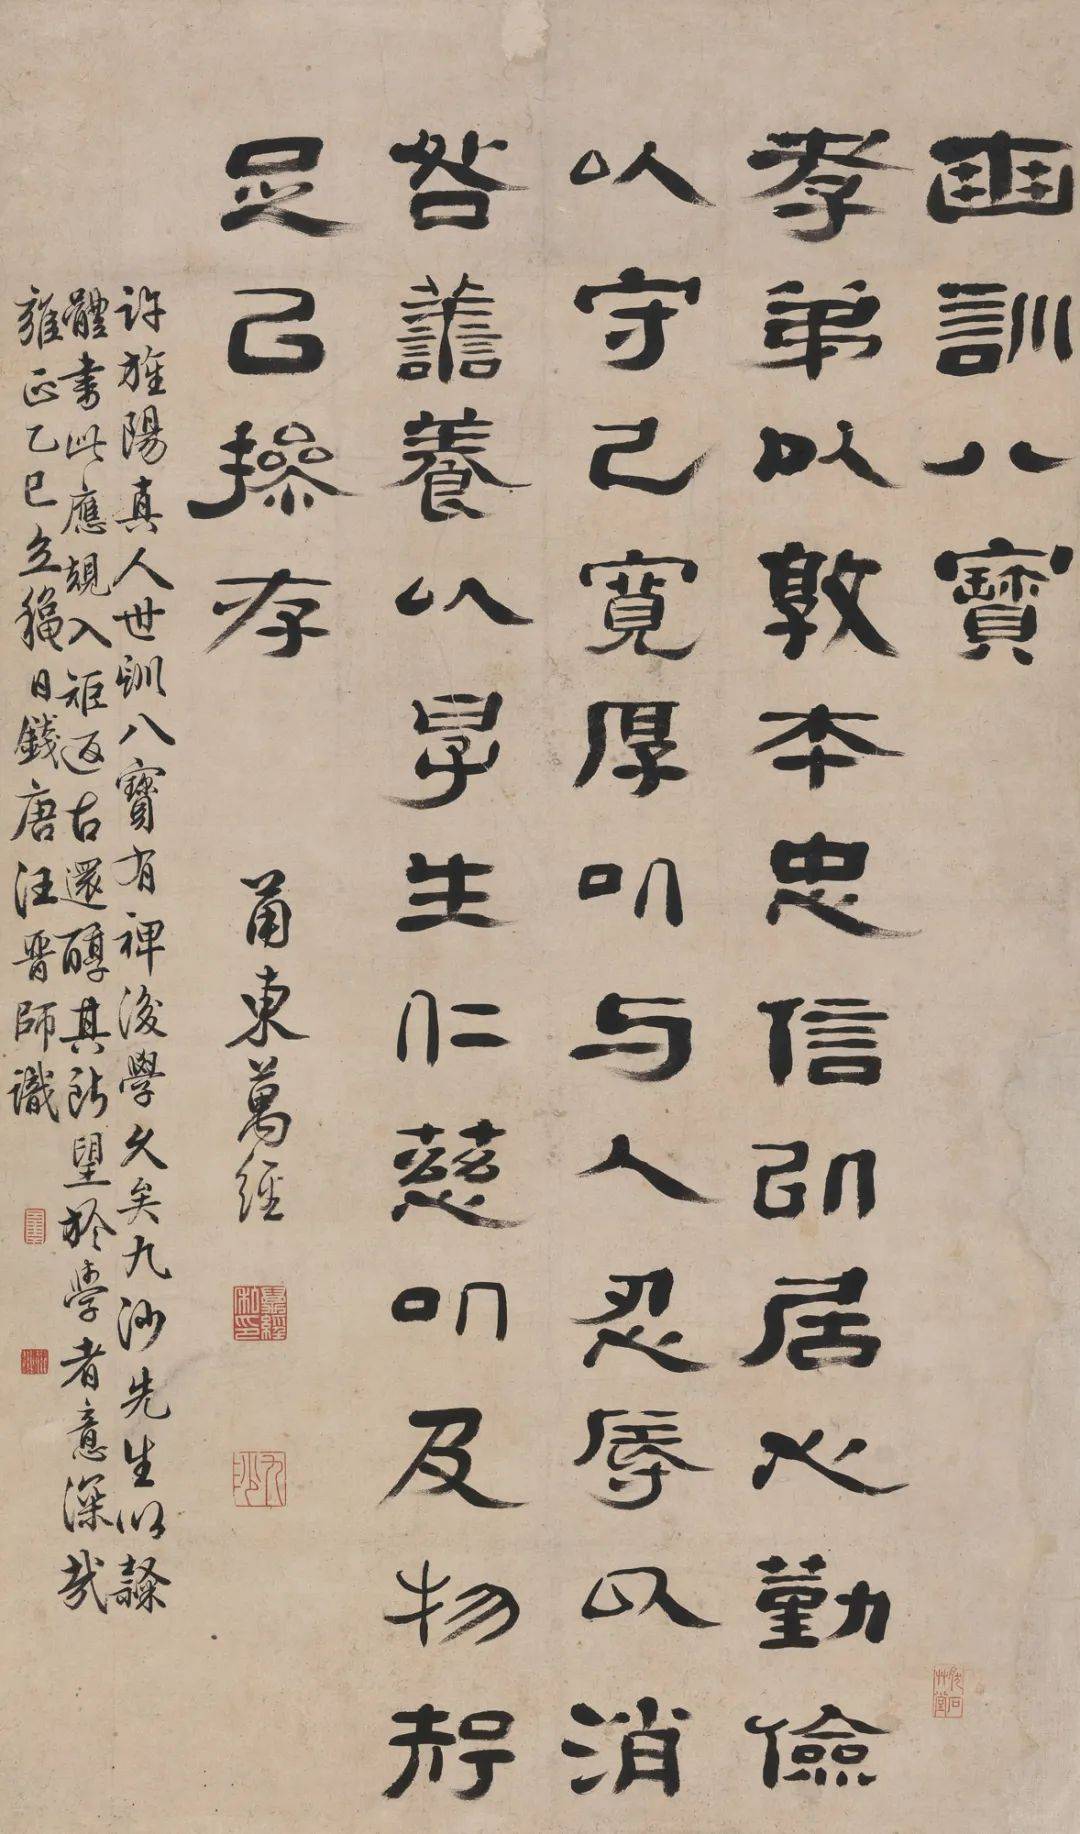 訓八寶
孝弟以敦本忠信以居心勤儉
以守己寬厚以与人忍辱以消
咎譱養以厚生仁慈以及物知
足己操存
甬東萬經
萬經私印
九沙
許旌陽真人世訓八寶有裨後學久矣九沙先生以隸
體書此應規入矩返古還醇其所望於學者意深哉
雍正乙巳立龝日錢唐汪晉師識